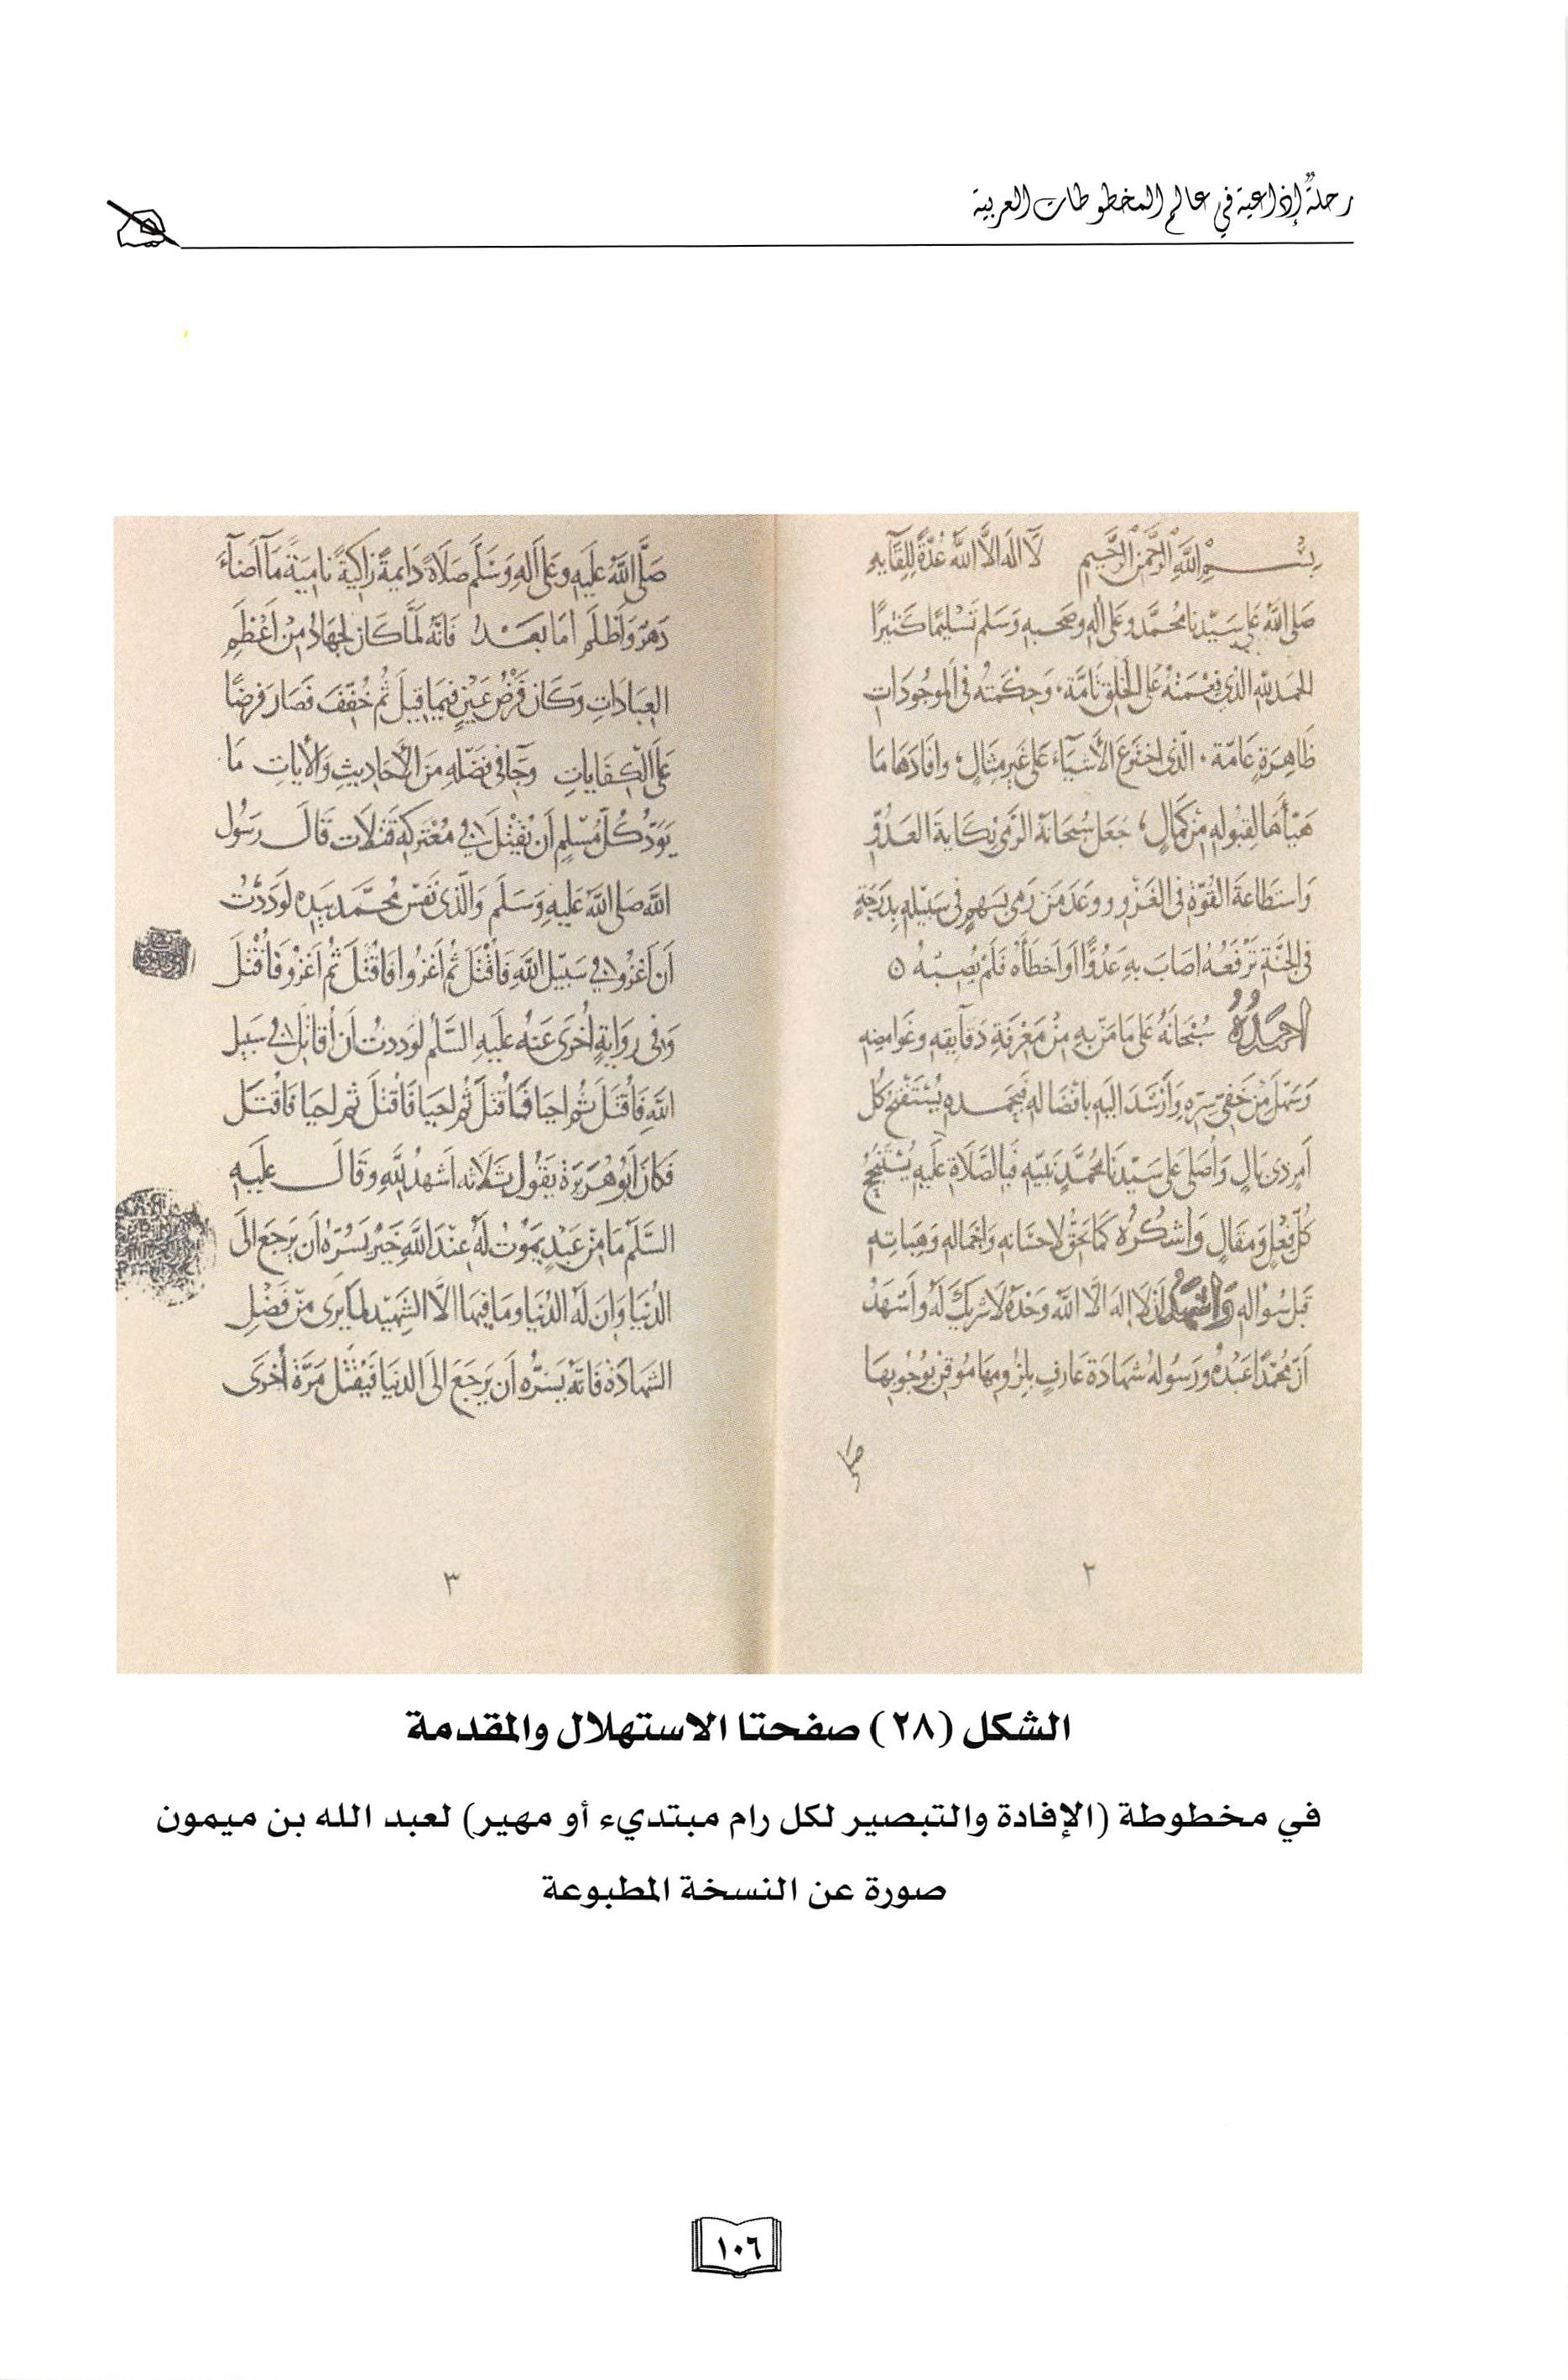 رحلةٌ إذاعية في عالم المخطوطات العربية
بسم الله الرحمن الرحيم لا اله الا الله عدة للقايه
صلى الله على سيدنا محمد وعلى اله وصحبه وسلم تسليما كثيرا
الحمد لله الذى نعمته على الخلق تامة وحكمته فى الموجودات
ظاهرة عامة الذى اخترع الأشياء على غير مثال وافادها ما
هيأها لقبوله من كمال جعل سبحانه الرمى نكاية العدو
واستطاعة القوة فى الغزو ووعد من رمى بسهم فى سبيله بدرجة
فى الجنة ترفعه اصاب به عدوا او اخطأه فلم يصبه
احمده سبحانه على ما من به من معرفة دقايقه وغوامضه
وسهل من خفى سره وأرشد اليه بافضاله فبحمده يستفتح كل
أمر ذى بال وأصلى على سيدنا محمد نبيه فبالصلاة عليه يستنجح
كل فعل ومقال واشكره كما يحق لاحسانه واجماله وهباته
قبل سواله واشهد ان لا اله الا الله وحده لا شريك له واشهد
أن محمدا عبده ورسوله شهادة عارف بلزومها موقن بوجوبها
صلى
٢
صلى الله عليه وعلى اله وسلم صلاة دايمة زاكية نامية ما أضاء
دهر وأظلم اما بعد فانه لما كان الجهاد من اعظم
العبادات وكان فرض عين فيما قيل ثم خفف فصار فرضا
على الكفايات وجا فى فضله من الأحاديث والأيات ما
يود كل مسلم أن يقتل فى معتركه قتلات قال رسول
الله صلى الله عليه وسلم والذى نفس محمد بيده لوددت
أن اغزوا فى سبيل الله فاقتل ثم اغزوا فاقتل ثم اغزو فاقتل
وفى رواية أخرى عنه عليه السلم لوددت أن أقاتل فى سبيل
الله فاقتل ثم احيا فاقتل ثم احيا فاقتل ثم احيا فاقتل
فكان أبو هريرة يقول ثلاثه اشهد لله وقال عليه
السلم ما من عبد يموت له عند الله خير يسره ان يرجع الى
الدنيا وان له الدنيا وما فيها الا الشهيد لما يرى من فضل
الشهادة فانه يسره ان يرجع الى الدنيا فيقتل مرة أخرى
٣
الشكل (٢٨) صفحتا الاستهلال والمقدمة
في مخطوطة (الإفادة والتبصير لكل رام مبتديء أو مهير) لعبد الله بن ميمون
صورة عن النسخة المطبوعة
١٠٦